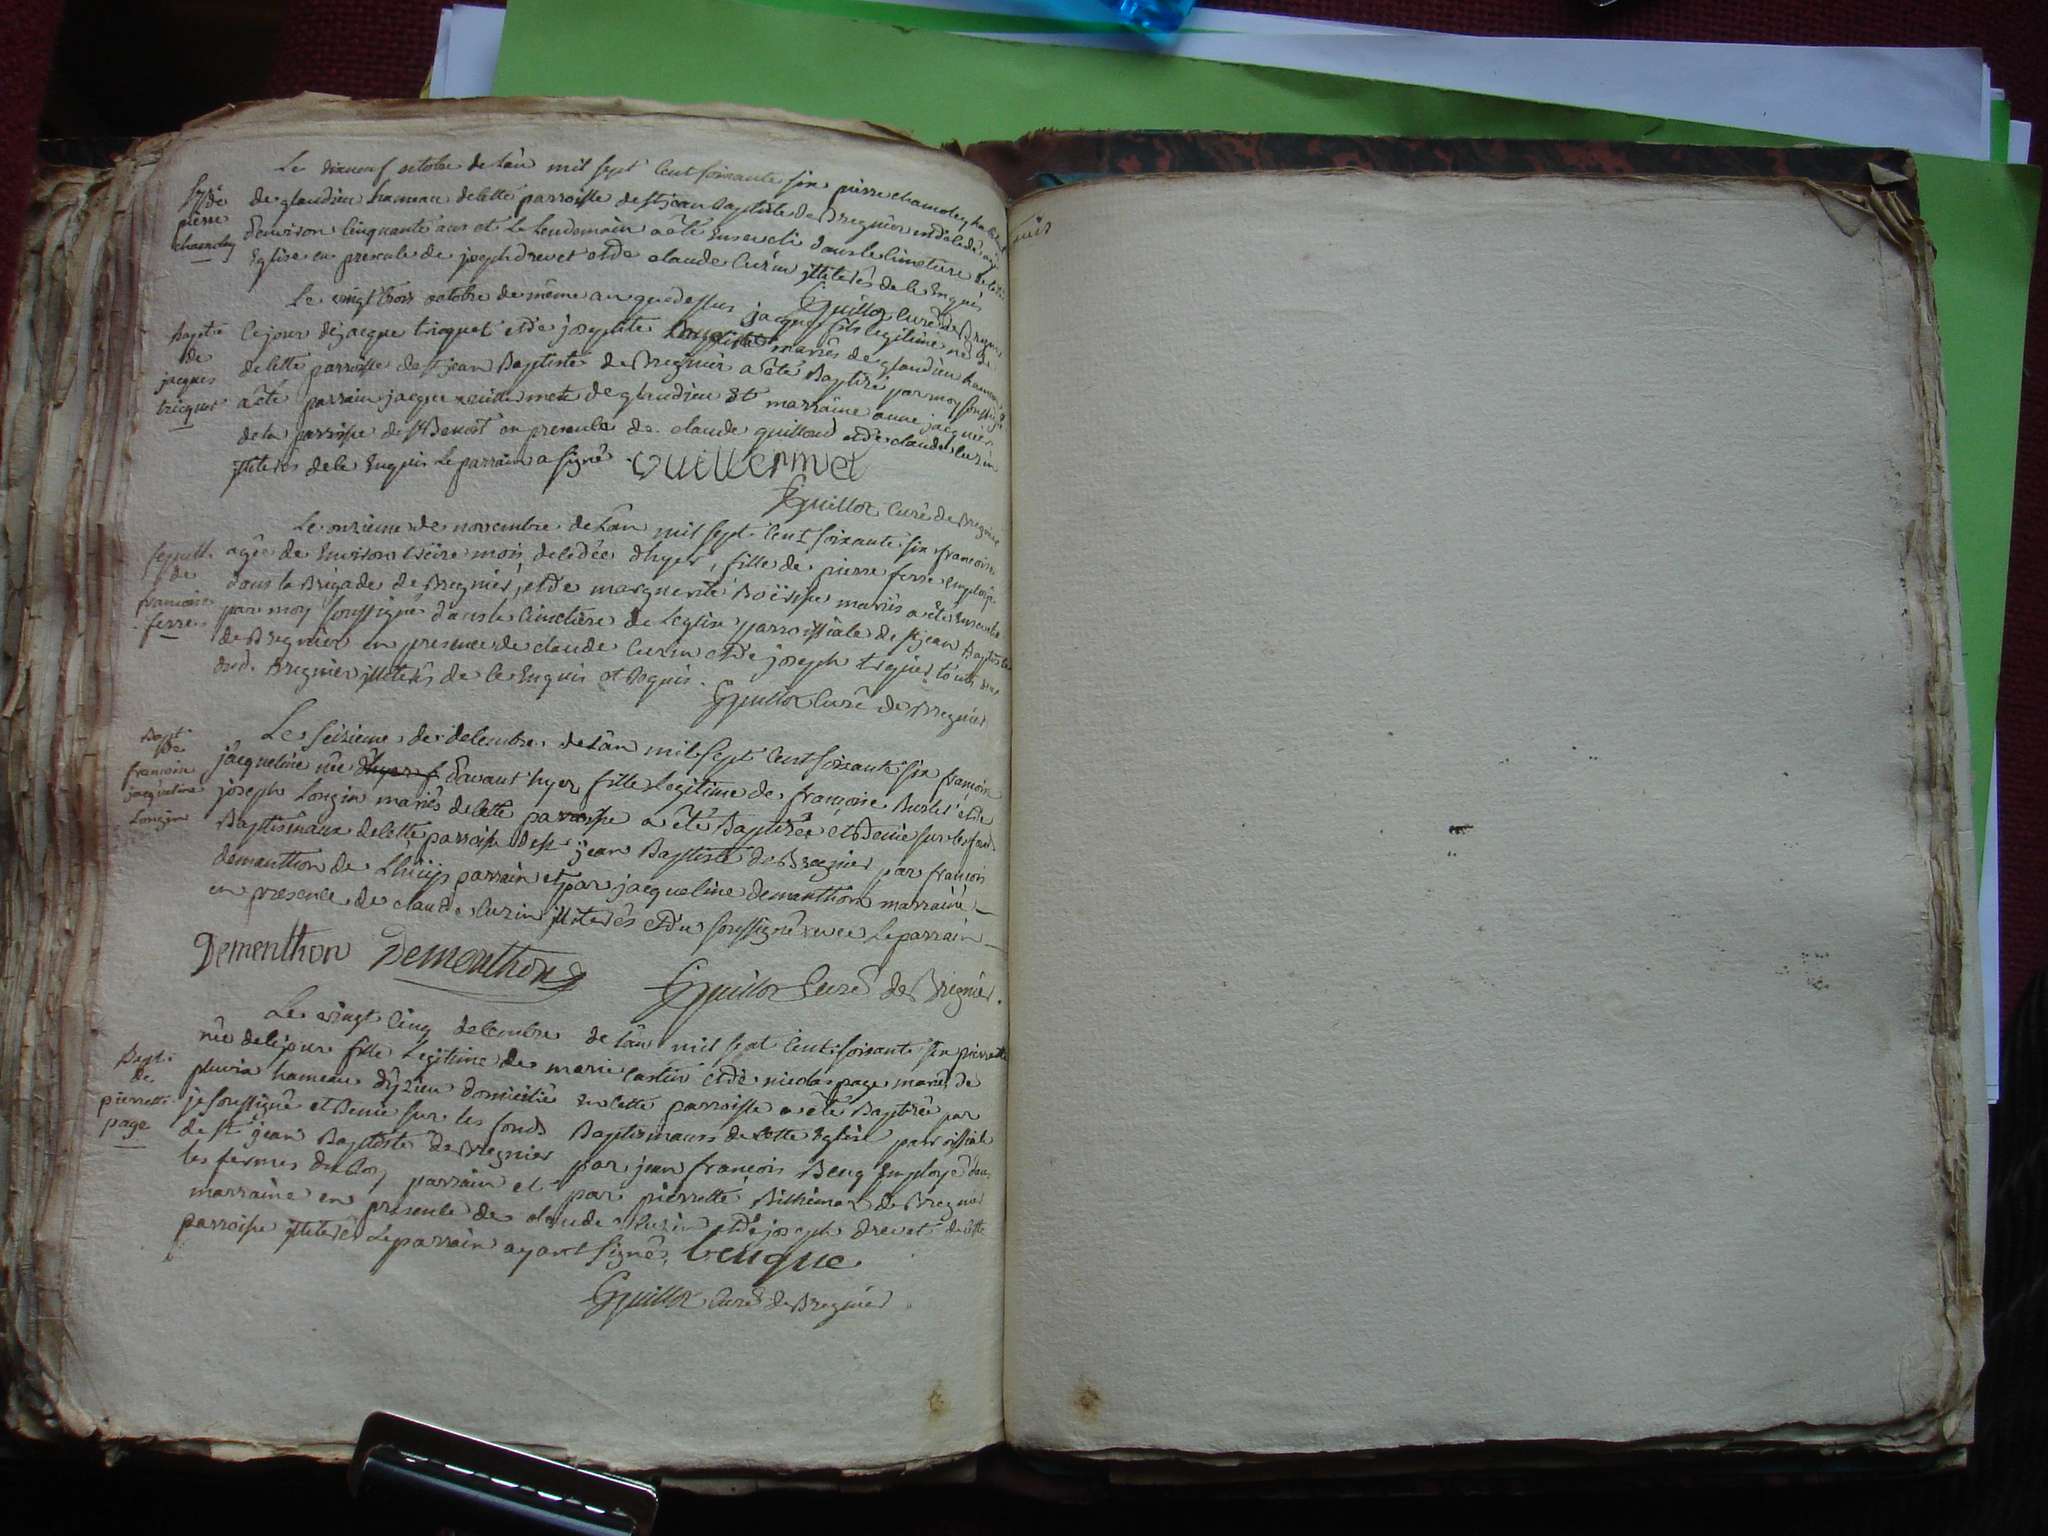 Le dixneuf octobre de L'an mil sept Cent soixante six pierre chamoley
de glandieu hameau de cette parroisse de st jean Baptiste de Bregnier est decedé agé
d'environ Cinquante ans et Le Lendemain a été Enseveli dans le Cimetiere de cette
Eglise en presence de joseph drevet et de claude Curin illiterés de ce Enquis
sep de
pierre
chamoley
Guillot Curé de Bregnier
Le vingt trois octobre de même an que dessus jacques fils legitime né de
Ce jour de jacque tricquet et de josephte mariés de glandieu hameau
de cette parroisse de st jean Baptiste de Bregnier a été Baptisé par moy soussigné
a été parrain jacque de glandieu Et marraine anne jacquier
de la parroisse de st Benoit en presence de claude guilloud et de claude Curin
illiterés de ce Enquis Le parrain a signé Guillermet
Bapt.e
de
jacques
tricquet
Guillot Curé de Bregnier
Le onzieme de novembre de L'an mil sept Cent soixante six francoise
agée de Environ treize mois decedée d'hyer, fille de pierre ferre employé
dans la Brigade de Bregnier, et de marguerite mariés a été Ensevelie
par moy soussigné dans le Cimetiere de L'eglise parroissiale de st jean Baptiste
de Bregnier en presence de claude Curin et de joseph touts deux
dud. Bregnier illiterés de ce Enquis et Requis.
sepult.
de
francoise
ferre
Guillot Curé de Bregnier
Le seizieme de decembre de L'an mil sept Cent soixante six francoise
jacqueline née d'avant hyer fille Legitime de françoise et de
joseph Longin mariés de cette parroisse a été Baptisée et tenüe sur les fonds
Baptismaux de cette parroisse de st jean Baptiste de Bregnier par francois
demanthon de Lhuijs parrain et par jacqueline demanthon marraine
en presence de claude Curin illiterés et du soussigné avec Le parrain
Bapt.
de
francoise
jacqueline
Longin
Dementhon Dementhon
Guillot Curé de Bregnier.
Le vingt Cinq decembre de L'an mil sept Cent soixante six pierrette
née de ce jour fille Legitime de marie Castin et de nicolas page mariés de
pluvia hameau d'yzieu domicilié en cette parroisse a été Baptisée par
je soussigné et tenüe sur les fonds Baptismaux de cette Eglise parroissiale
de st jean Baptiste de Bregnier par jean francois Beug Employé dans
les fermes du Roy parrain et par pierrette de Bregnier
marraine en presence de claude Curin et de joseph drevet de cette
parroisse illiterés Le parrain ayant signé. beugue
Bapt.
de
pierrette
page
Guillot Curé de Bregnier